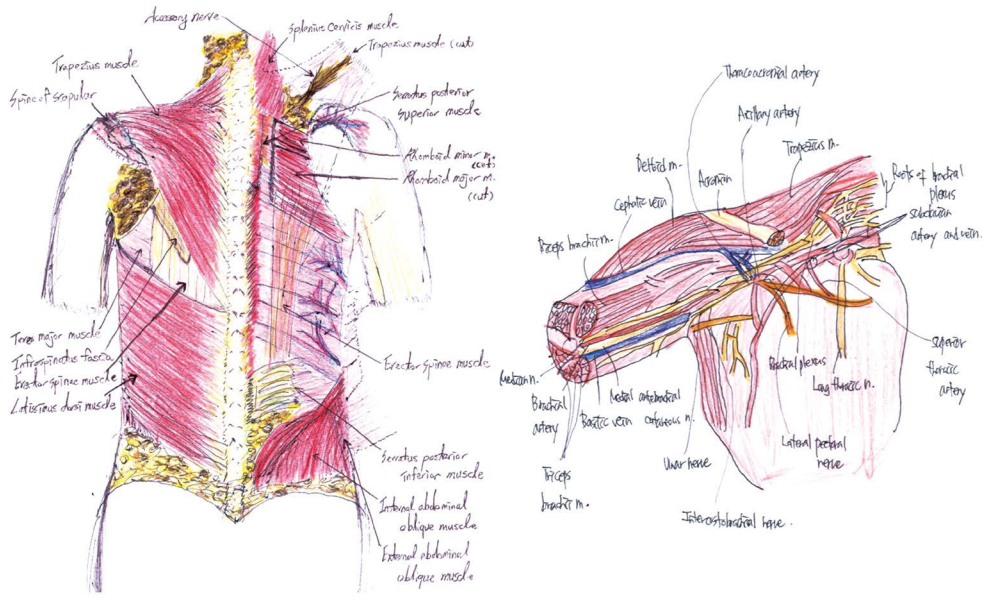 Accessory nerve
Splenius cervicis muscle
Trapezius muscle (cut)
Trapezius muscle
Spine of srapular
Serratus posterior
Superior muscle
Rhomboid minor m.
(cut)
Rhomboid major m.
(cut)
Teres major muscle
Infrospinotus fascia
Erector spinae muscle
Latissimus dorsi muscle
Erector spinae muscle
Serratus posterior
Inferior muscle
Internal abdominal
oblique muscle
External abdominal
oblique muscle
Thoracoacromial artery
Axillary artery
Trapezius m.
Deltoid m.
Acromian
Roots of brachial
plexus
subclavian
artery and vein.
Cephalic vein
Biceps brachii m.
Median n.
Brachial
artery
Basilic vein
Medial antebrachial
cutaneous n.
Triceps
brachii m.
Ulnar nerve
Brachial plexus
Long thoracic n.
superior
thoracic
artery
Lateral pectoral
nerve
Intercostobrachial nerve.